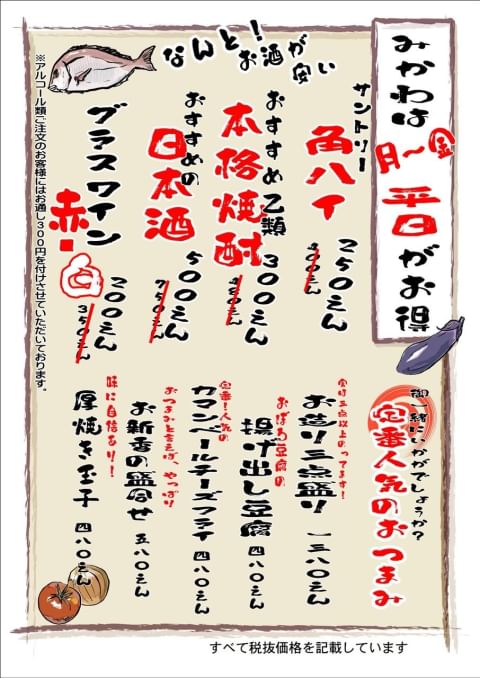 みかわは
月～金
平日がお得
なんと！お酒が安い
サントリー
角ハイ
250えん
400えん
おすすめ乙類
本格焼酎
300えん
480えん
おすすめの
日本酒
500えん
750えん
グラスワイン
赤・白
200えん
350えん
※アルコール類ご注文のお客様にはお通し300円を付けさせていただいております。
御一緒にいかがでしょうか？
定番人気のおつまみ
実は三点以上のってます！
お造り三点盛り 一三八〇えん
おぼろ豆腐の
揚げ出し豆腐 四八〇えん
定番！人気の
カマンベールチーズフライ 四八〇えん
おつまみと言えば、やっぱり
お新香の盛合せ 五八〇えん
味に自信あり！
厚焼き玉子 四八〇えん
すべて税抜価格を記載しています